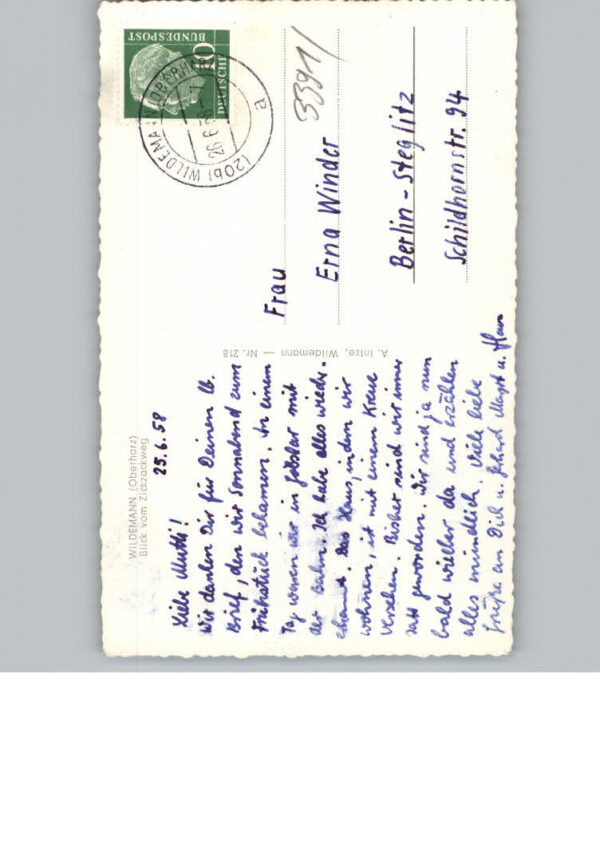 WILDEMANN (Oberharz)
Blick vom Zickzackweg
25.6.58
Liebe Mutti!
Wir danken Dir für Deinen lb.
Brief, den wir Sonnabend zum
Frühstück bekamen. An einem
Tag waren wir in Goslar mit
der Bahn. Ich habe alles wieder
erkannt. Das Haus, in dem wir
wohnen, ist mit einem Kreuz
versehen. Bisher sind wir immer
satt geworden. Wir sind ja nun
bald wieder da und erzählen
alles mündlich. Viele liebe
Grüße an Dich u. u.
A. Intze, Wildemann — Nr. 218
DEUTSCHE
BUNDESPOST
10
(20b) WILDEMANN (OBERHARZ)
26.6.58
a
3391/
Frau
Erna Winder
Berlin-Steglitz
Schildhornstr. 94.